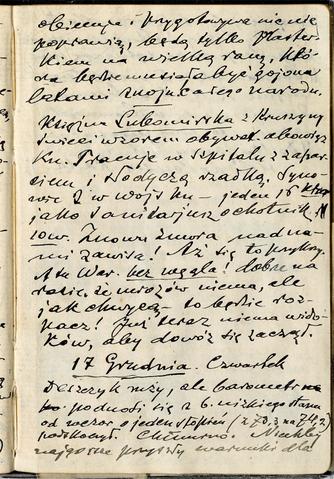 obiecuje i przygotowywa nie nie
poprawią, będą tylko plaster-
kiem na wielką ranę, któ-
ra będzie musiała być gojona
latami znoju całego narodu.
Księżna Lubomirska z Kruszyny
świeci wzorem obywat.
Kn. Pracuje w szpitalu z zapar-
ciem i słodyczą rzadką. Syno-
wie 2 w wojsku – jeden 16
jako sanitarjusz ochotnik.
10 w. Znowu zmora nad na-
mi zawisła! Aż się to przykrzy.
A tu War. bez węgla! dobre na
razie, że mrozów niema, ale
jak chwycą – to będzie roz-
pacz! Już teraz niema wido-
ków, aby dowóz się zaczął.
17 Grudnia. Czwartek
Deszczyk mży, ale barometr
podnosi się z b. nizkiego stanu
od wczoraj o jeden stopień
Chmurno. Niechby
najgorsze przyszły warunki dla